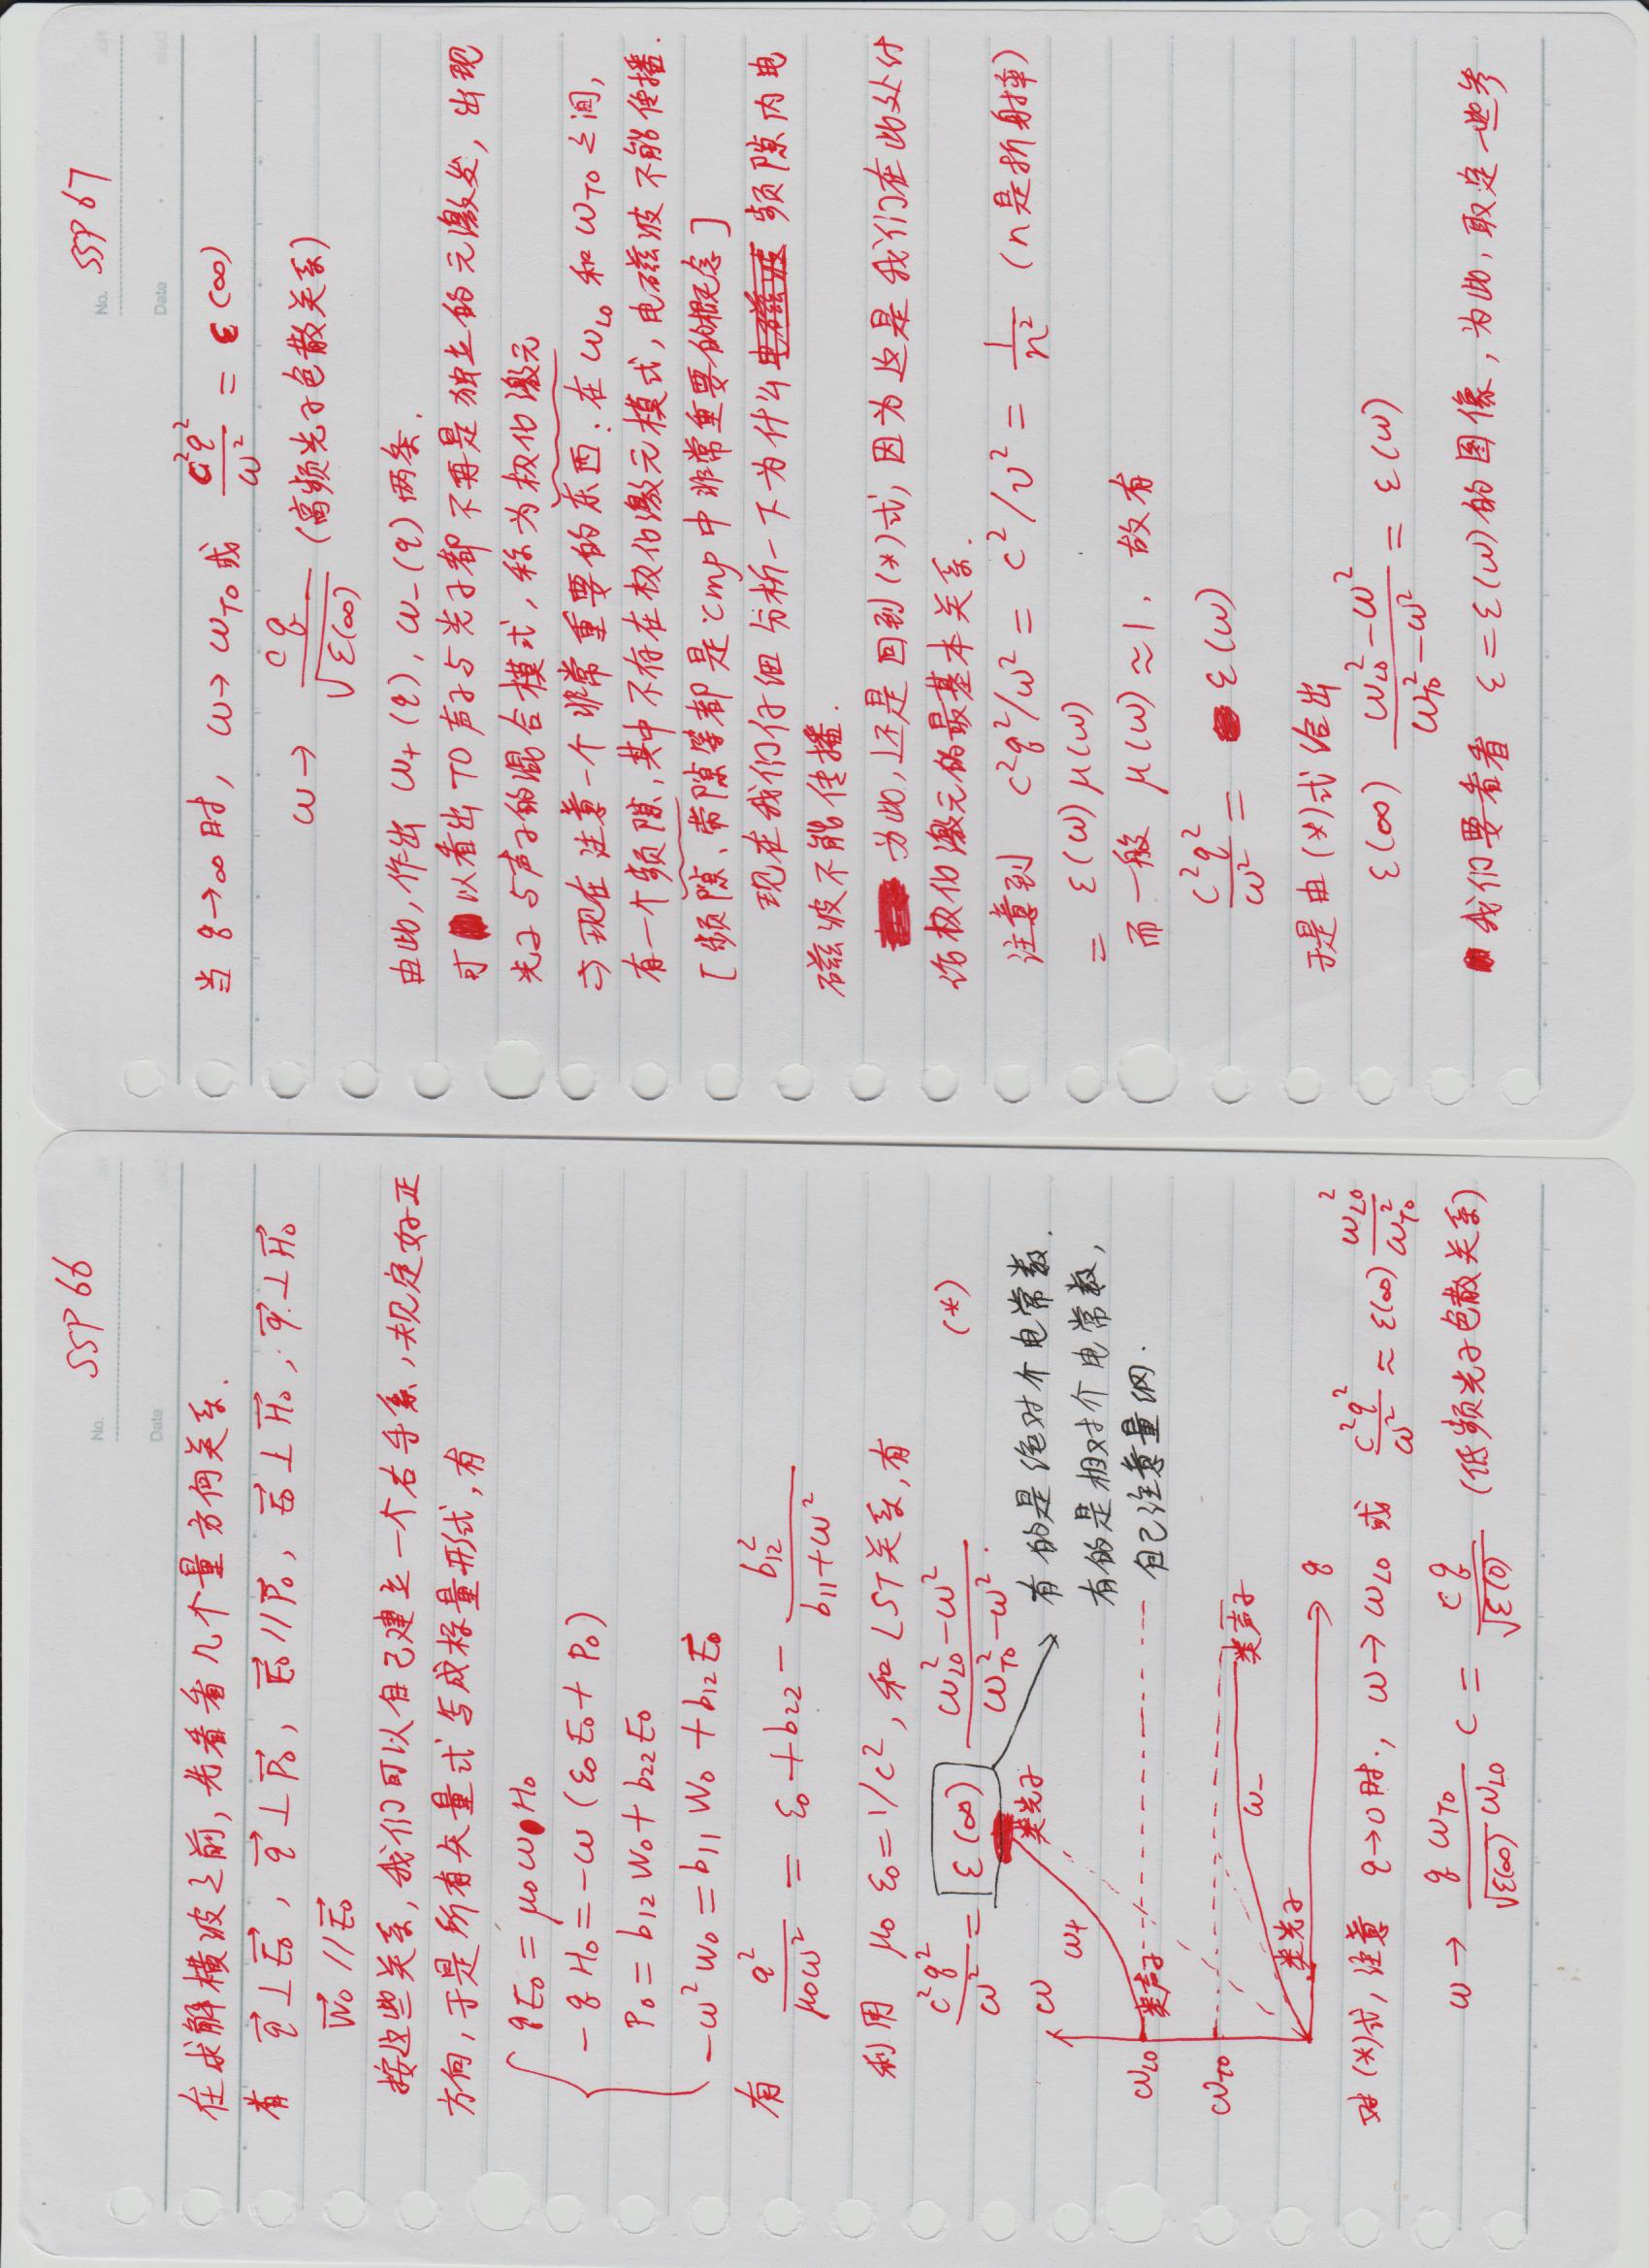 SSP 66
No.
Date
在求解横波之前,先看看几个量方向关系.
有 q⃗⊥E⃗₀, q⃗⊥P⃗₀, E⃗₀//P⃗₀, E⃗₀⊥H⃗₀, q⃗⊥H⃗₀
W⃗₀//E⃗₀
按这些关系,我们可以自己建立一个右手系,规定好正
方向,于是所有矢量式写成标量形式,有
qE₀ = μ₀ωH₀
-qH₀ = -ω(ε₀E₀+P₀)
P₀ = b₁₂W₀+b₂₂E₀
-ω²W₀ = b₁₁W₀+b₁₂E⃗₀
有 q²/μ₀ω² = ε₀+b₂₂ - b₁₂²/(b₁₁+ω²)
利用 μ₀ε₀=1/c², 和LST关系,有
c²q²/ω² = ε(∞) (ω_LO²-ω²)/(ω_TO²-ω²). (*)
有的是绝对介电常数.
有的是相对介电常数,
自己注意量纲.
ω
ω₊
类光子
ω_LO
类声子
ω_TO
ω₋
类声子
类光子
q
对(*)式,注意 q→0时., ω→ω_LO 或 c²q²/ω² ≈ ε(∞) ω_LO²/ω_TO²
ω → qω_TO/(√ε(∞) ω_LO) c = cq/√ε(0) (低频光子色散关系)
SSP 67
No.
Date
当 q→∞时, ω→ω_TO 或 c²q²/ω² = ε(∞)
ω → cq/√ε(∞) (高频光子色散关系)
由此,作出 ω₊(q), ω₋(q) 两条.
可以看出TO声子与光子都不再是独立的元激发,出现
光子与声子的混合模式,称为极化激元
⇒现在注意一个非常重要的东西:在ω_LO和ω_TO之间,
有一个频隙,其中不存在极化激元模式,电磁波不能传播.
[频隙、带隙等都是cmp中非常重要的概念]
现在我们仔细分析一下为什么频隙内电
磁波不能传播.
为此,还是回到(*)式,因为这是我们在此处讨
论极化激元的最基本关系.
注意到 c²q²/ω² = c²/v² = 1/n² (n是折射率)
= ε(ω)μ(ω)
而一般 μ(ω)≈1. 故有
c²q²/ω² = ε(ω)
于是由(*)式给出
ε(∞) (ω_LO²-ω²)/(ω_TO²-ω²) = ε(ω)
我们要看看 ε=ε(ω)的图像,为此,取定一些参